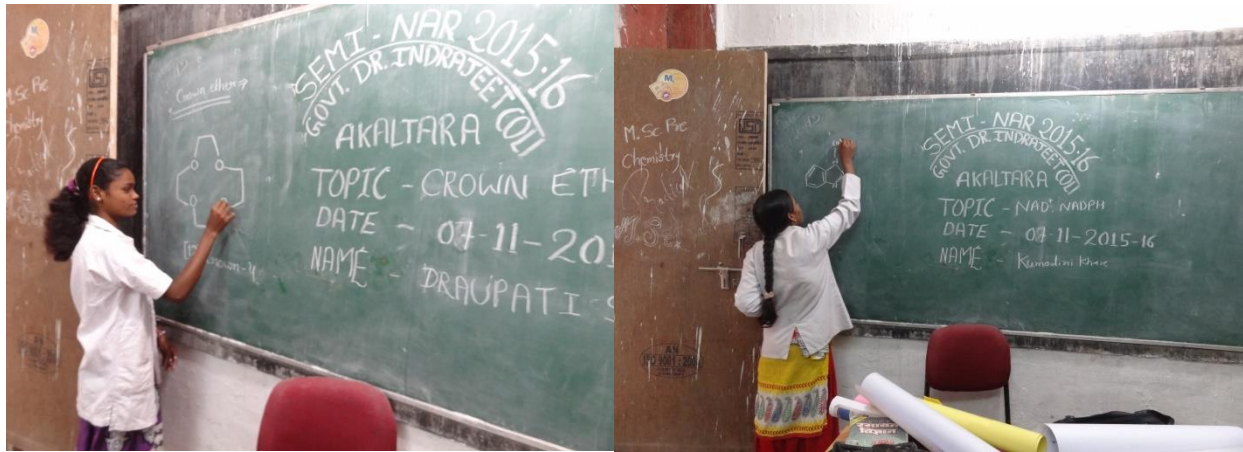 M.Sc Pre
Chemistry
Crown ether
SEMI - NAR 2015-16
GOVT. DR. INDRAJEET COLL
AKALTARA
TOPIC - CROWN ETH
DATE - 07-11-201
NAME - DRAUPATI S
M.Sc Pre
Chemistry
SEMI - NAR 2015-16
GOVT. DR. INDRAJEET COLL
AKALTARA
TOPIC - NAD+ NADPH
DATE - 07-11-2015-16
NAME - Kumodini Khare